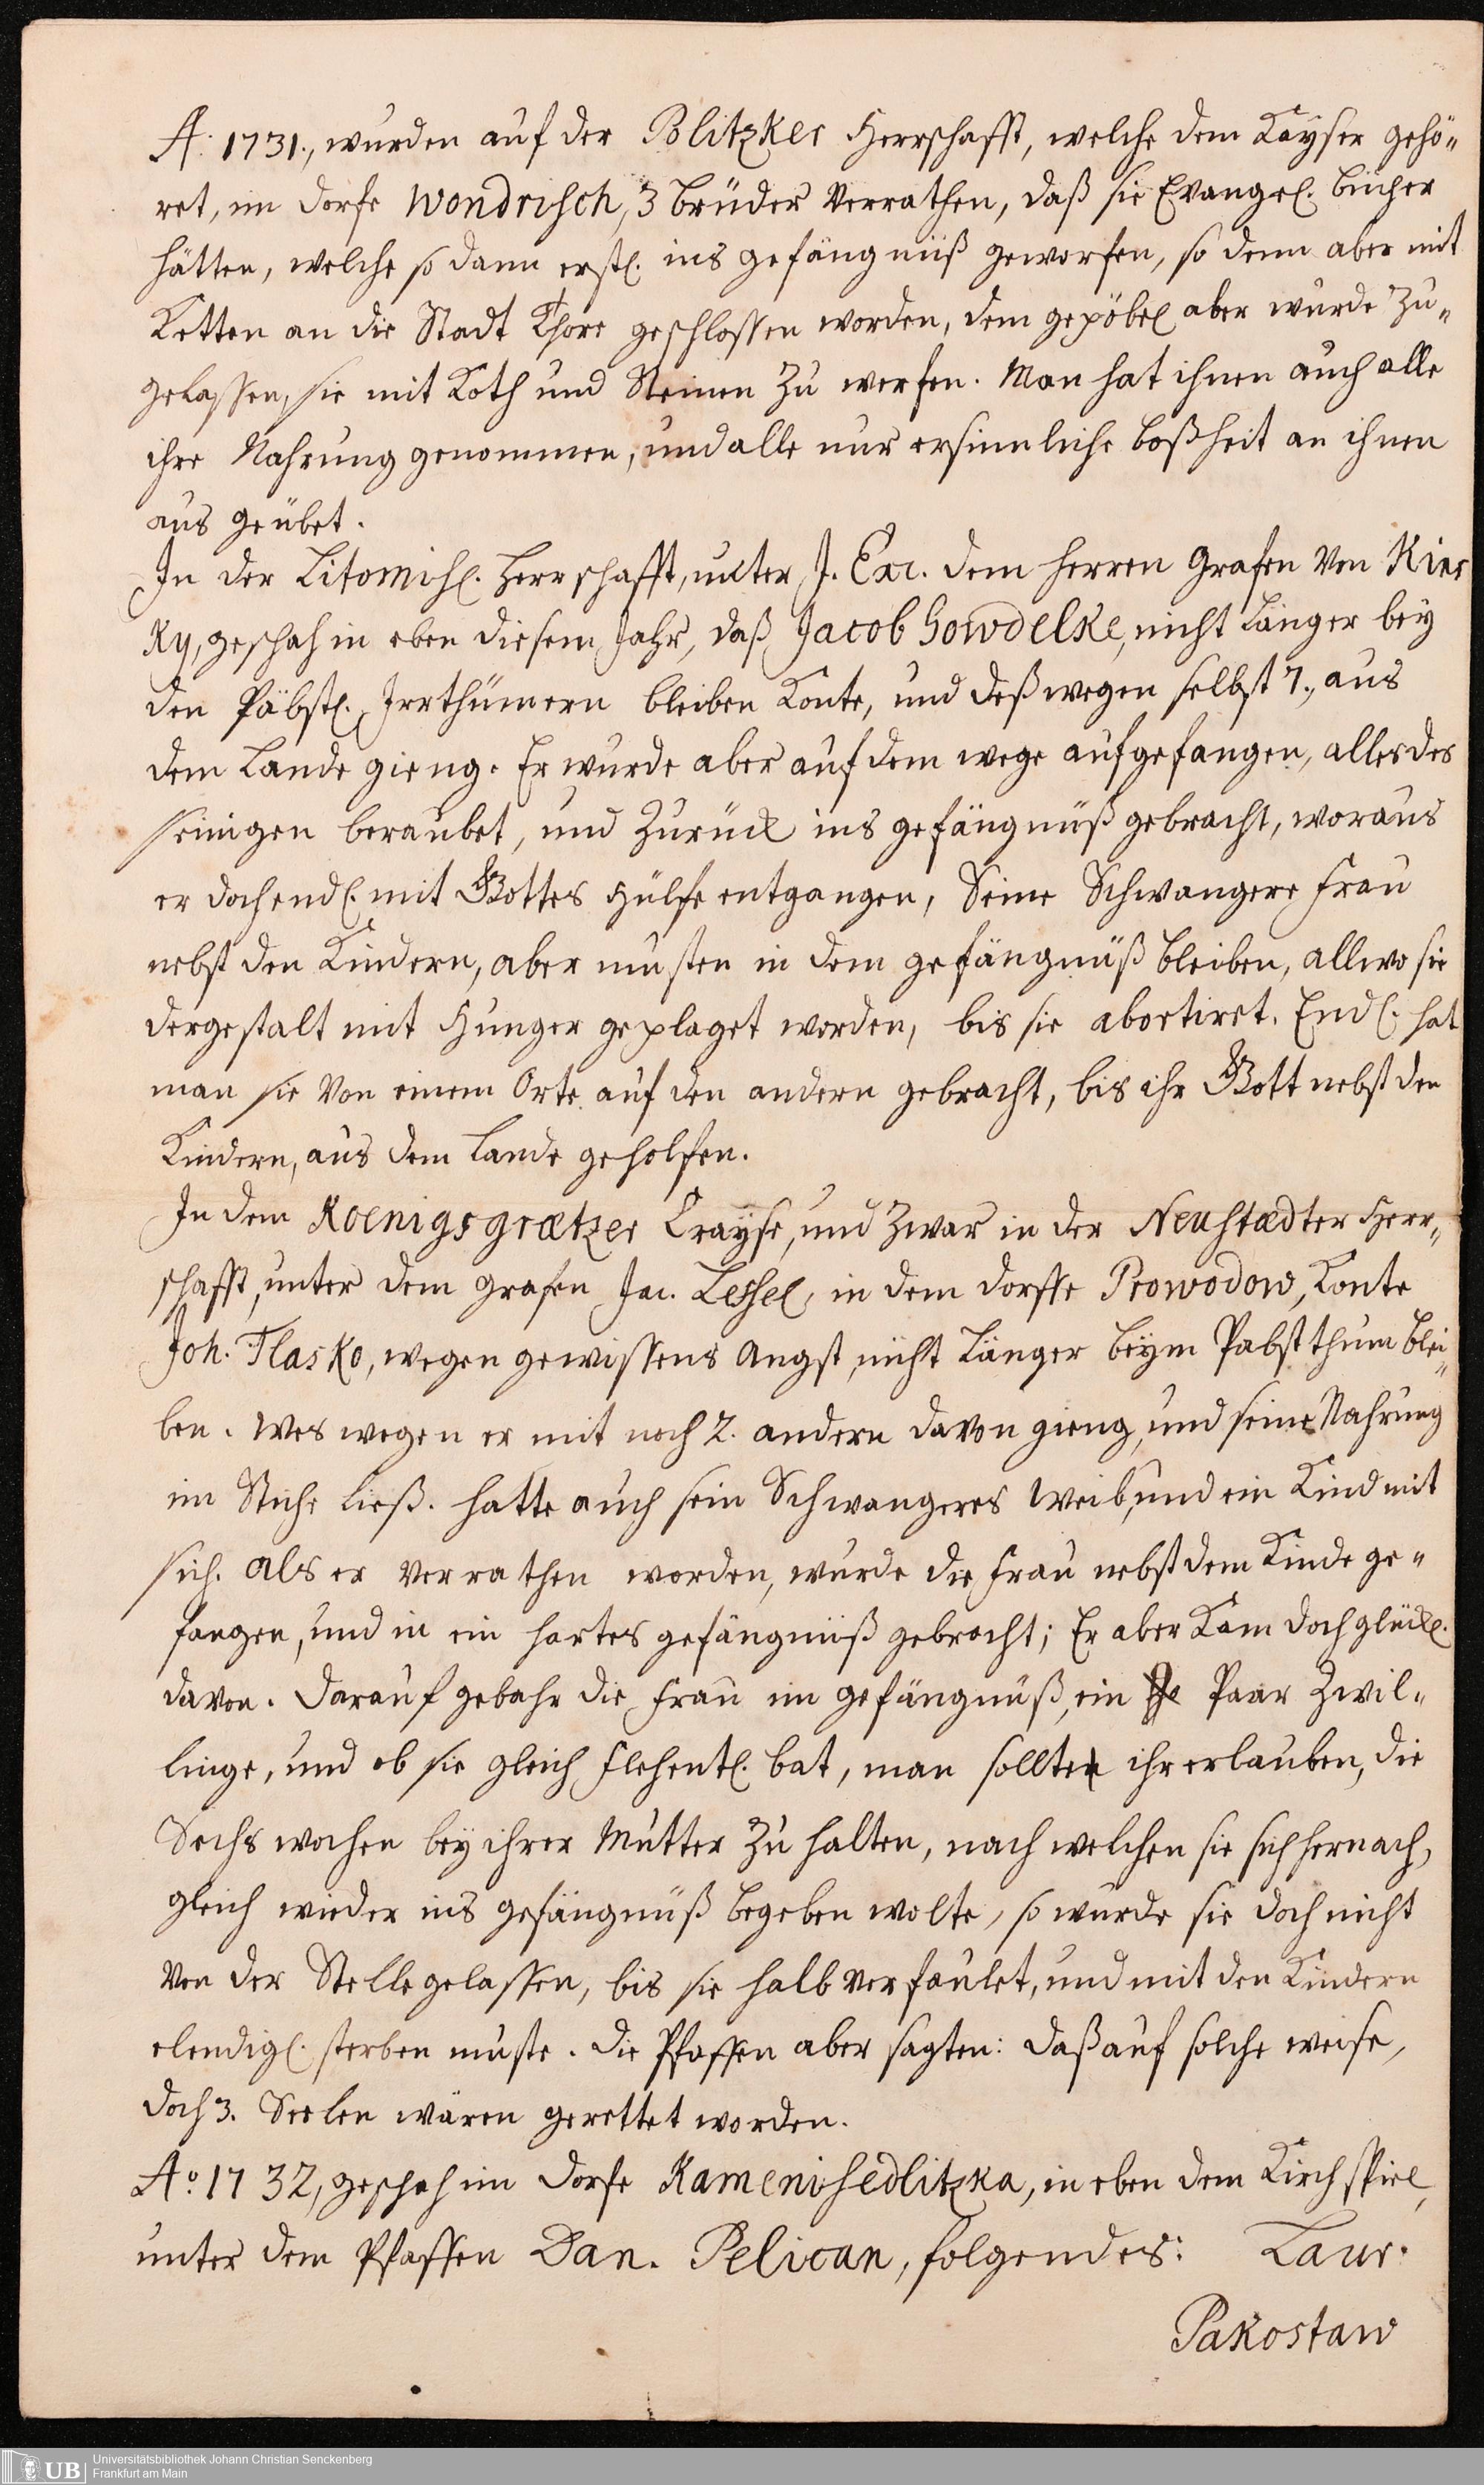 A. 1731., wurden auf der Politzker Herrschafft, welche dem Kayser gehö„
ret, im Dorfe Wondrisch, 3 Brüder verrathen, daß sie Evangel. Bücher
hätten, welche so dann erstl. ins gefängnüß geworfen, so denn aber mit
Ketten an die Stadt Thore geschlossen worden, dem gepöbel aber wurde zu„
gelassen, sie mit Koth und Steinen zu werfen. Man hat ihnen auch alle
ihre Nahrung genommen, und alle nur ersinnliche boßheit an ihnen
aus geübet.
In der Litomisl. Herrschafft, unter J. Exc. dem Herren Grafen von Kins
ky, geschah in eben diesem Jahr, daß Jacob Sowdelke, nicht länger bey
den Päbstl. Irrthümern bleiben konte, und deßwegen selbst 7., aus
dem Lande gieng. Er wurde aber auf dem wege aufgefangen, alles des
seinigen beraubet, und zurück ins gefängnüß gebracht, woraus
er doch endl. mit Gottes Hülfe entgangen, Seine Schwangere Frau
nebst den Kindern, aber musten in dem gefängnüß bleiben, allwo sie
dergestalt mit Hunger geplaget worden, bis sie abortiret. Endl. hat
man sie von einem Orte auf den andern gebracht, bis ihr Gott nebst den
Kindern, aus dem Lande geholfen.
In dem Koenigsgrætzer Crayse, und zwar in der Neustædter Herr„
schafft, unter dem grafen Jac. Leshel, in dem dorffe Prowodow, konte
Joh. Flasko, wegen gewissens Angst, nicht länger beym Pabstthum blei„
ben. Wes wegen er mit noch 2. andern davon gieng, und seine Nahrung
im Stiche ließ. Hatte auch sein Schwangeres Weib, und ein Kind mit
sich. Als er verrathen worden, wurde die Frau nebst dem Kinde ge„
fangen, und in ein hartes gefängnüß gebracht; Er aber kam doch glückl.
davon. Darauf gebahr die Frau im gefängnüß, ein Paar Zwil„
linge, und ob sie gleich flehentl. bat, man sollte ihr erlauben, die
Sechs wochen bey ihrer Mutter zu halten, nach welchen sie sich hernach,
gleich wieder ins gefängnüß begeben wolte, so wurde sie doch nicht
von der Stelle gelassen, bis sie halb verfaulet, und mit den Kindern
elendigl. sterben muste. Die Pfaffen aber sagten: daß auf solche weise,
doch 3. Seelen wären gerettet worden.
Ao 1732, geschah im Dorfe Kamenisedlitzka, in eben dem Kirchspiel,
unter dem Pfaffen Dan. Pelican, folgendes: Laur.
Pakostaw
UB
Universitätsbibliothek Johann Christian Senckenberg
Frankfurt am Main